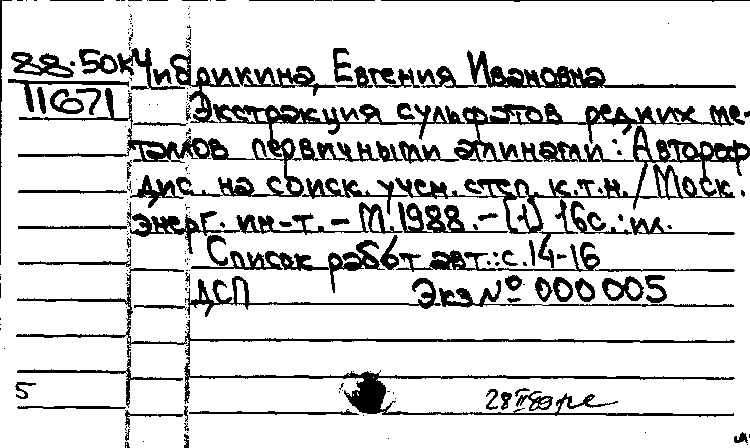 88.50к
11671
Чибрикина, Евгения Ивановна
Экстракция сульфатов редких ме-
таллов первичными аминами: Автореф.
дис. на соиск. учен. степ. к.т.н. / Моск.
энерг. ин-т. – М. 1988. – [1] 16с.: ил.
Список работ авт.: с. 14-16
ДСП Экз № 000005
5